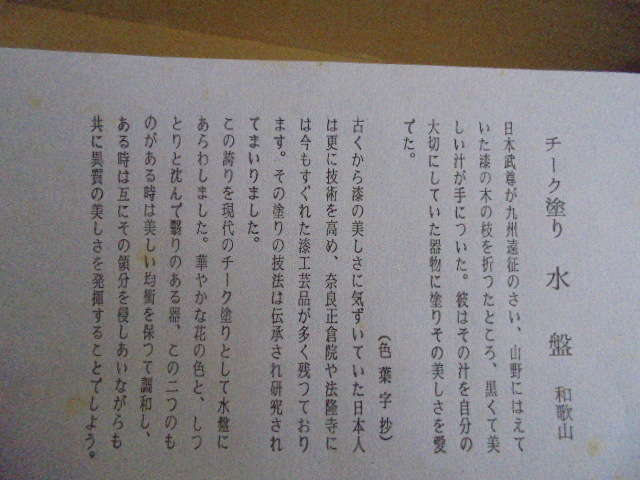 チーク塗り 水盤 和歌山
日本武尊が九州遠征のさい、山野にはえて
いた漆の木の枝を折つたところ、黒くて美
しい汁が手についた。彼はその汁を自分の
大切にしていた器物に塗りその美しさを愛
でた。
(色葉字抄)
古くから漆の美しさに気ずいていた日本人
は更に技術を高め、奈良正倉院や法隆寺に
は今もすぐれた漆工芸品が多く残つており
ます。その塗りの技法は伝承され研究され
てまいりました。
この誇りを現代のチーク塗りとして水盤に
あらわしました。華やかな花の色と、しつ
とりと沈んで翳りのある器、この二つのも
のがある時は美しい均衝を保つて調和し、
ある時は互にその領分を侵しあいながらも
共に異質の美しさを発揮することでしよう。